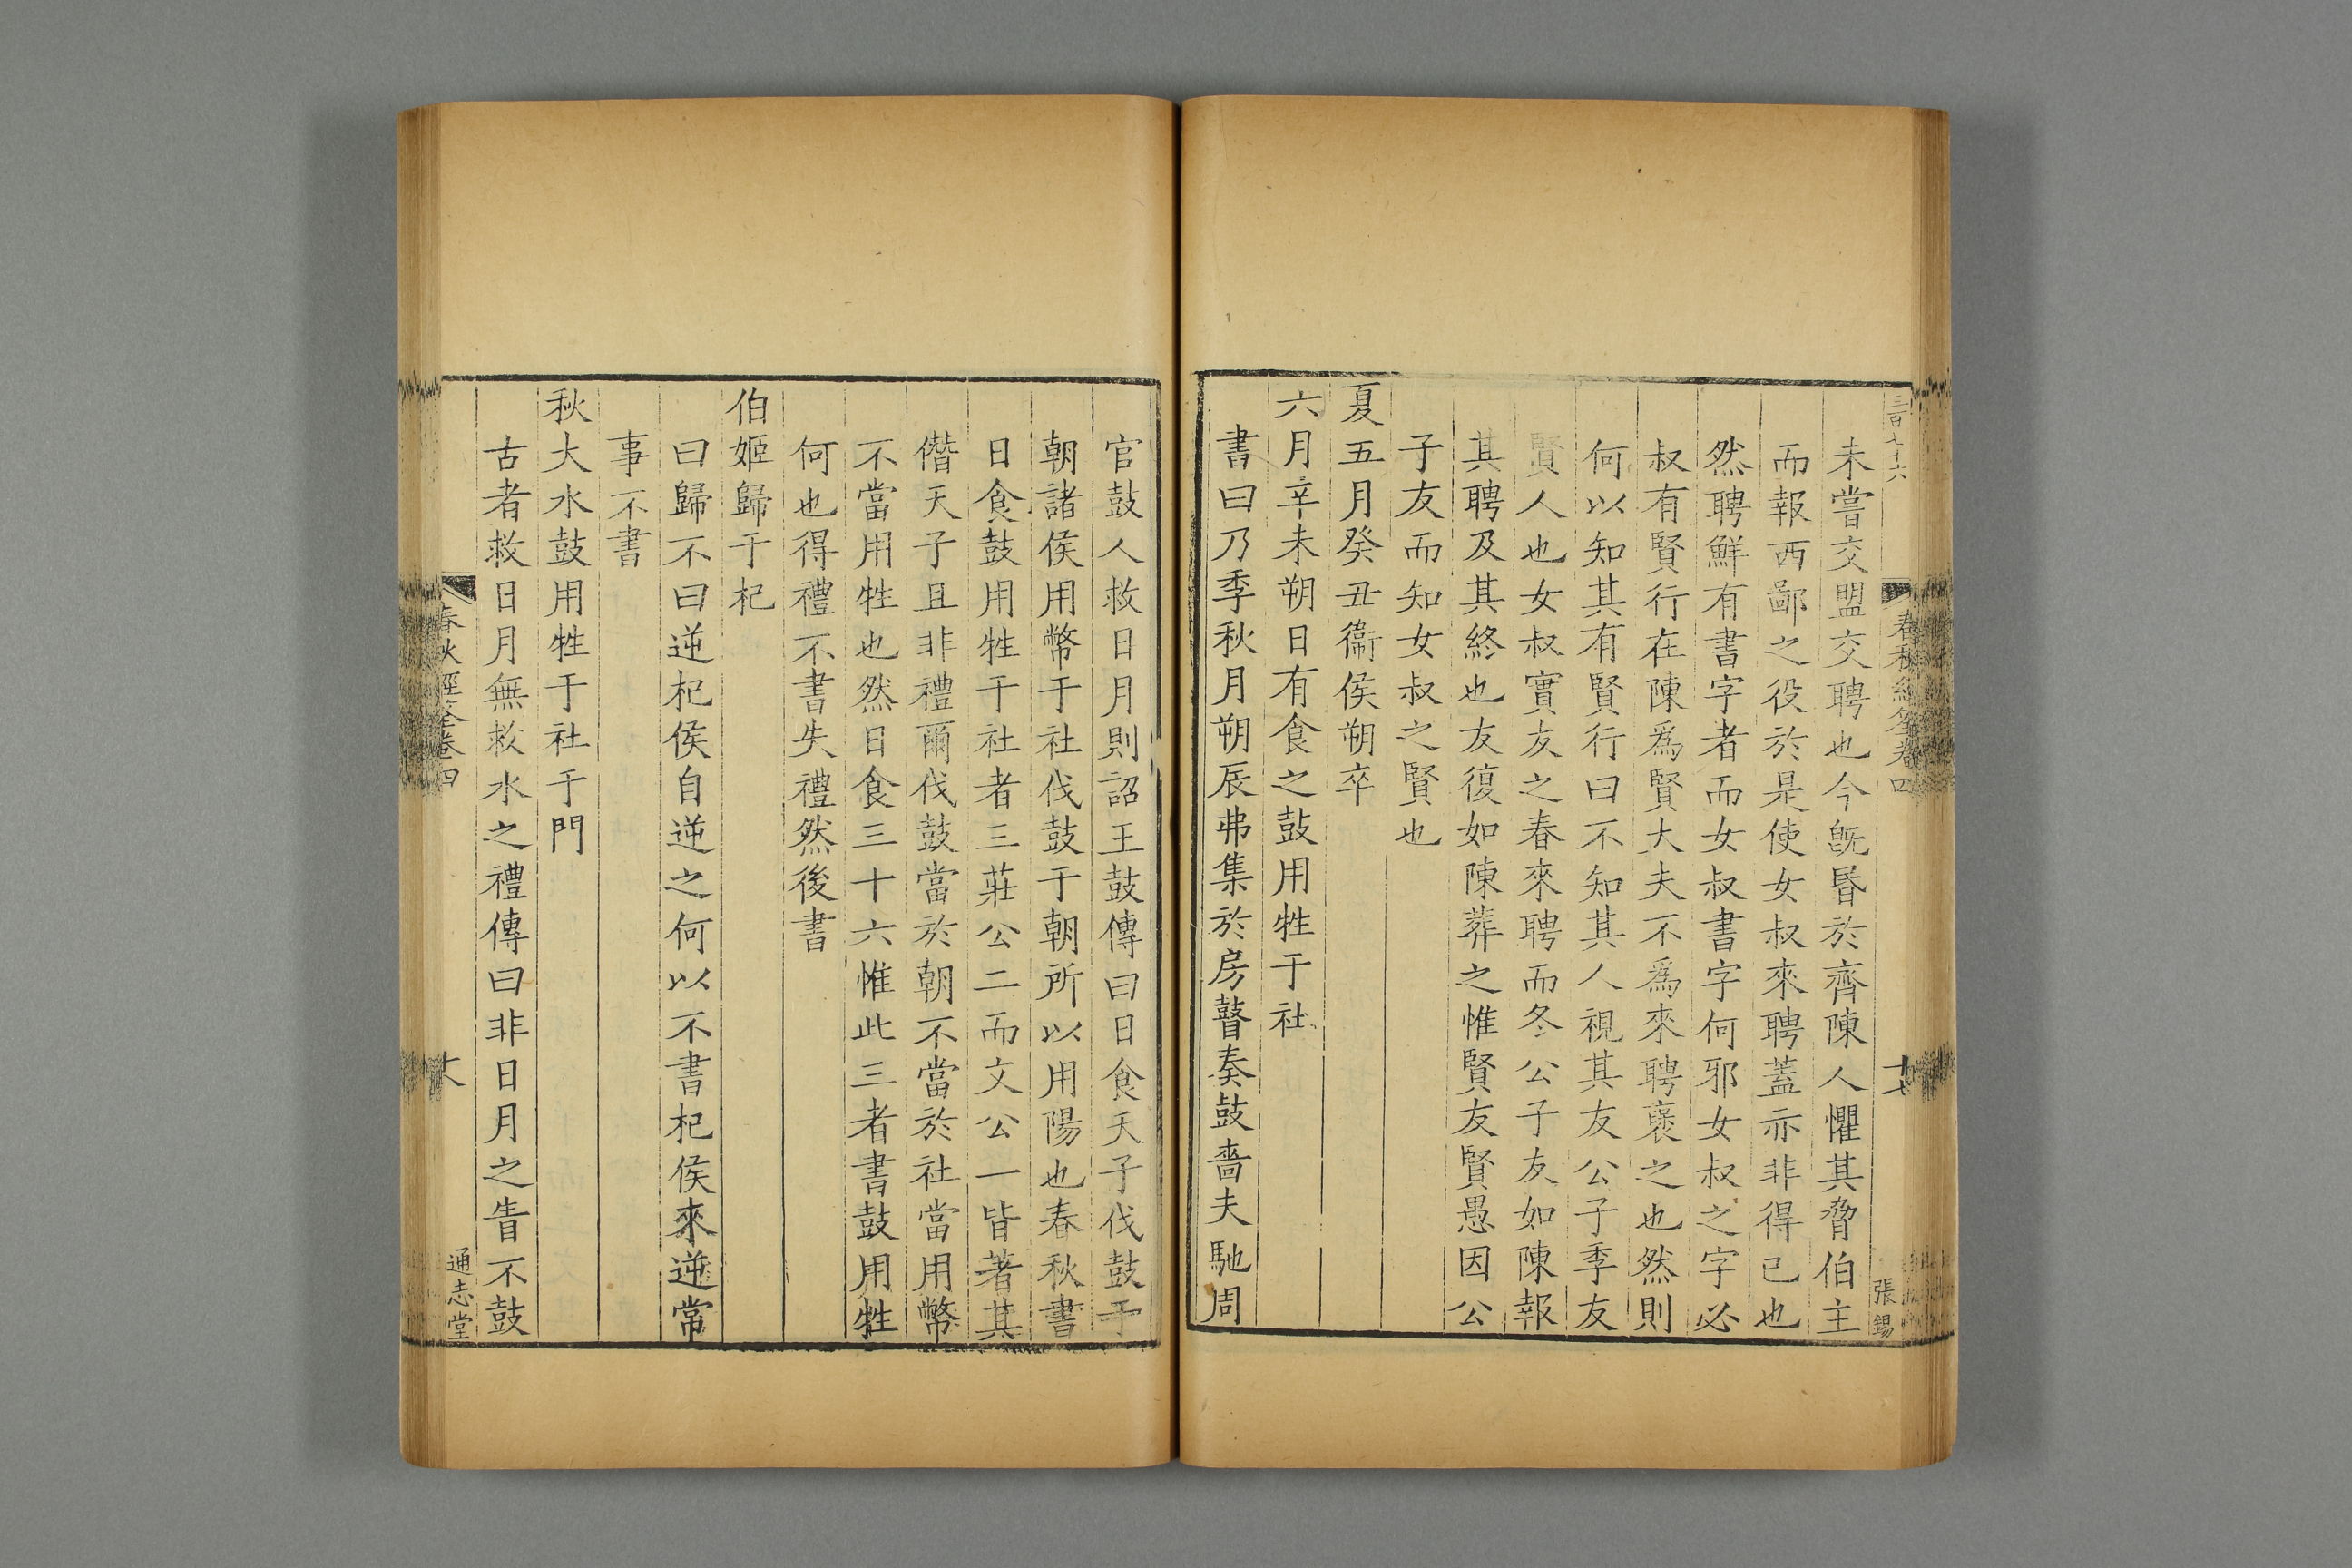 三百七十六
春秋經筌卷四
十七
張錫
未嘗交盟交聘也今旣昬於齊陳人懼其脅伯主
而報西鄙之役於是使女叔來聘蓋亦非得已也
然聘鮮有書字者而女叔書字何邪女叔之字必
叔有賢行在陳爲賢大夫不爲來聘襃之也然則
何以知其有賢行曰不知其人視其友公子季友
賢人也女叔實友之春來聘而冬公子友如陳報
其聘及其終也友復如陳葬之惟賢友賢愚因公
子友而知女叔之賢也
夏五月癸丑衞侯朔卒
六月辛未朔日有食之鼓用牲于社
書曰乃季秋月朔辰弗集於房瞽奏鼓嗇夫馳周
官鼓人救日月則詔王鼓傳曰日食天子伐鼓于
朝諸侯用幣于社伐鼓于朝所以用陽也春秋書
日食鼓用牲于社者三莊公二而文公一皆著其
僭天子且非禮爾伐鼓當於朝不當於社當用幣
不當用牲也然日食三十六惟此三者書鼓用牲
何也得禮不書失禮然後書
伯姬歸于杞
曰歸不曰逆杞侯自逆之何以不書杞侯來逆常
事不書
秋大水鼓用牲于社于門
古者救日月無救水之禮傳曰非日月之眚不鼓
春秋經筌卷四
通志堂